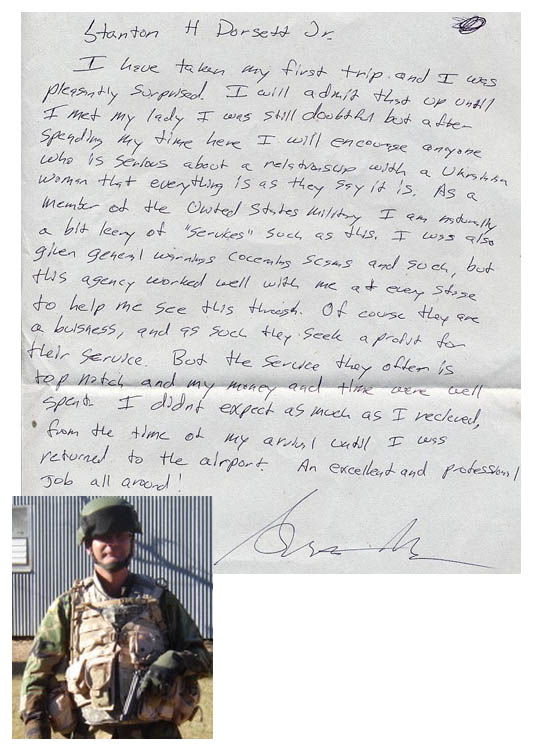 Stanton H Dorsett Jr.
I have taken my first trip and I was
pleasantly surprised. I will admit that up until
I met my lady I was still doubtful but after
spending my time here I will encourage anyone
who is serious about a relationship with a Ukrainian
woman that everything is as they say it is. As a
member of the United States Military I am naturally
a bit leery of "services" such as this. I was also
given general warnings cocerning scams and such, but
this agency worked well with me at every stage
to help me see this through. Of course they are
a buisness, and as such they seek a profit for
their service. But the service they often is
top notch and my money and time were well
spent. I didnt expect as much as I recieved,
from the time of my arival until I was
returned to the airport. An excellent and professional
job all around!